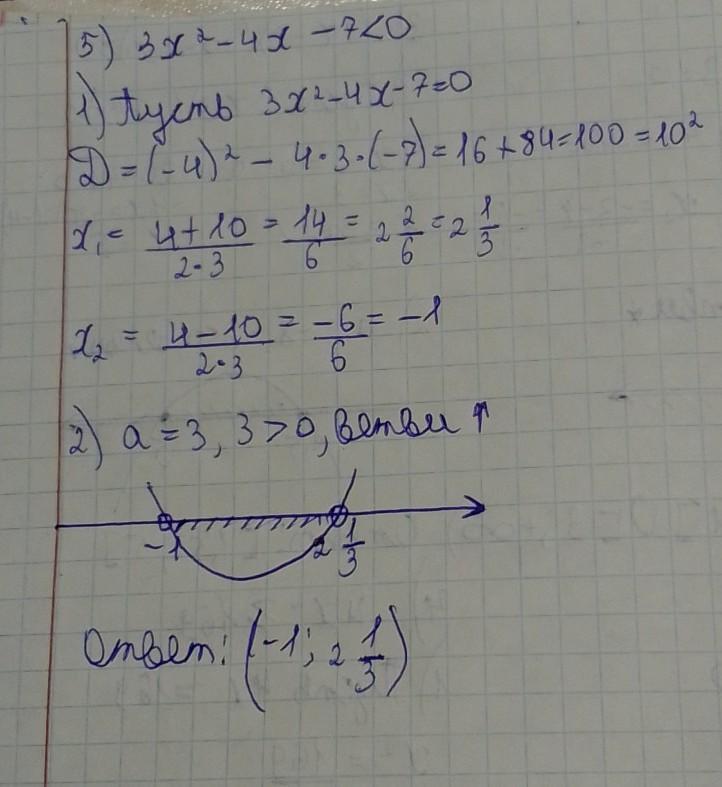 5) 3x² - 4x - 7 < 0
1) Пусть 3x² - 4x - 7 = 0
D = (-4)² - 4·3·(-7) = 16 + 84 = 100 = 10²
x₁ = (4+10)/(2·3) = 14/6 = 2 2/6 = 2 1/3
x₂ = (4-10)/(2·3) = -6/6 = -1
2) a = 3, 3 > 0, ветви ↑
-1 2 1/3
Ответ: (-1; 2 1/3)